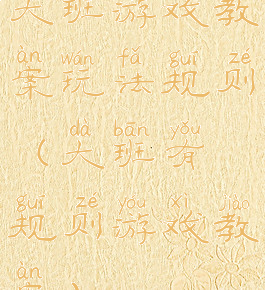 大班游戏教
àn wán fǎ guī zé
案玩法规则
dà bān yǒu
（大班有
guī zé yóu xì jiào
规则游戏教
àn
案）